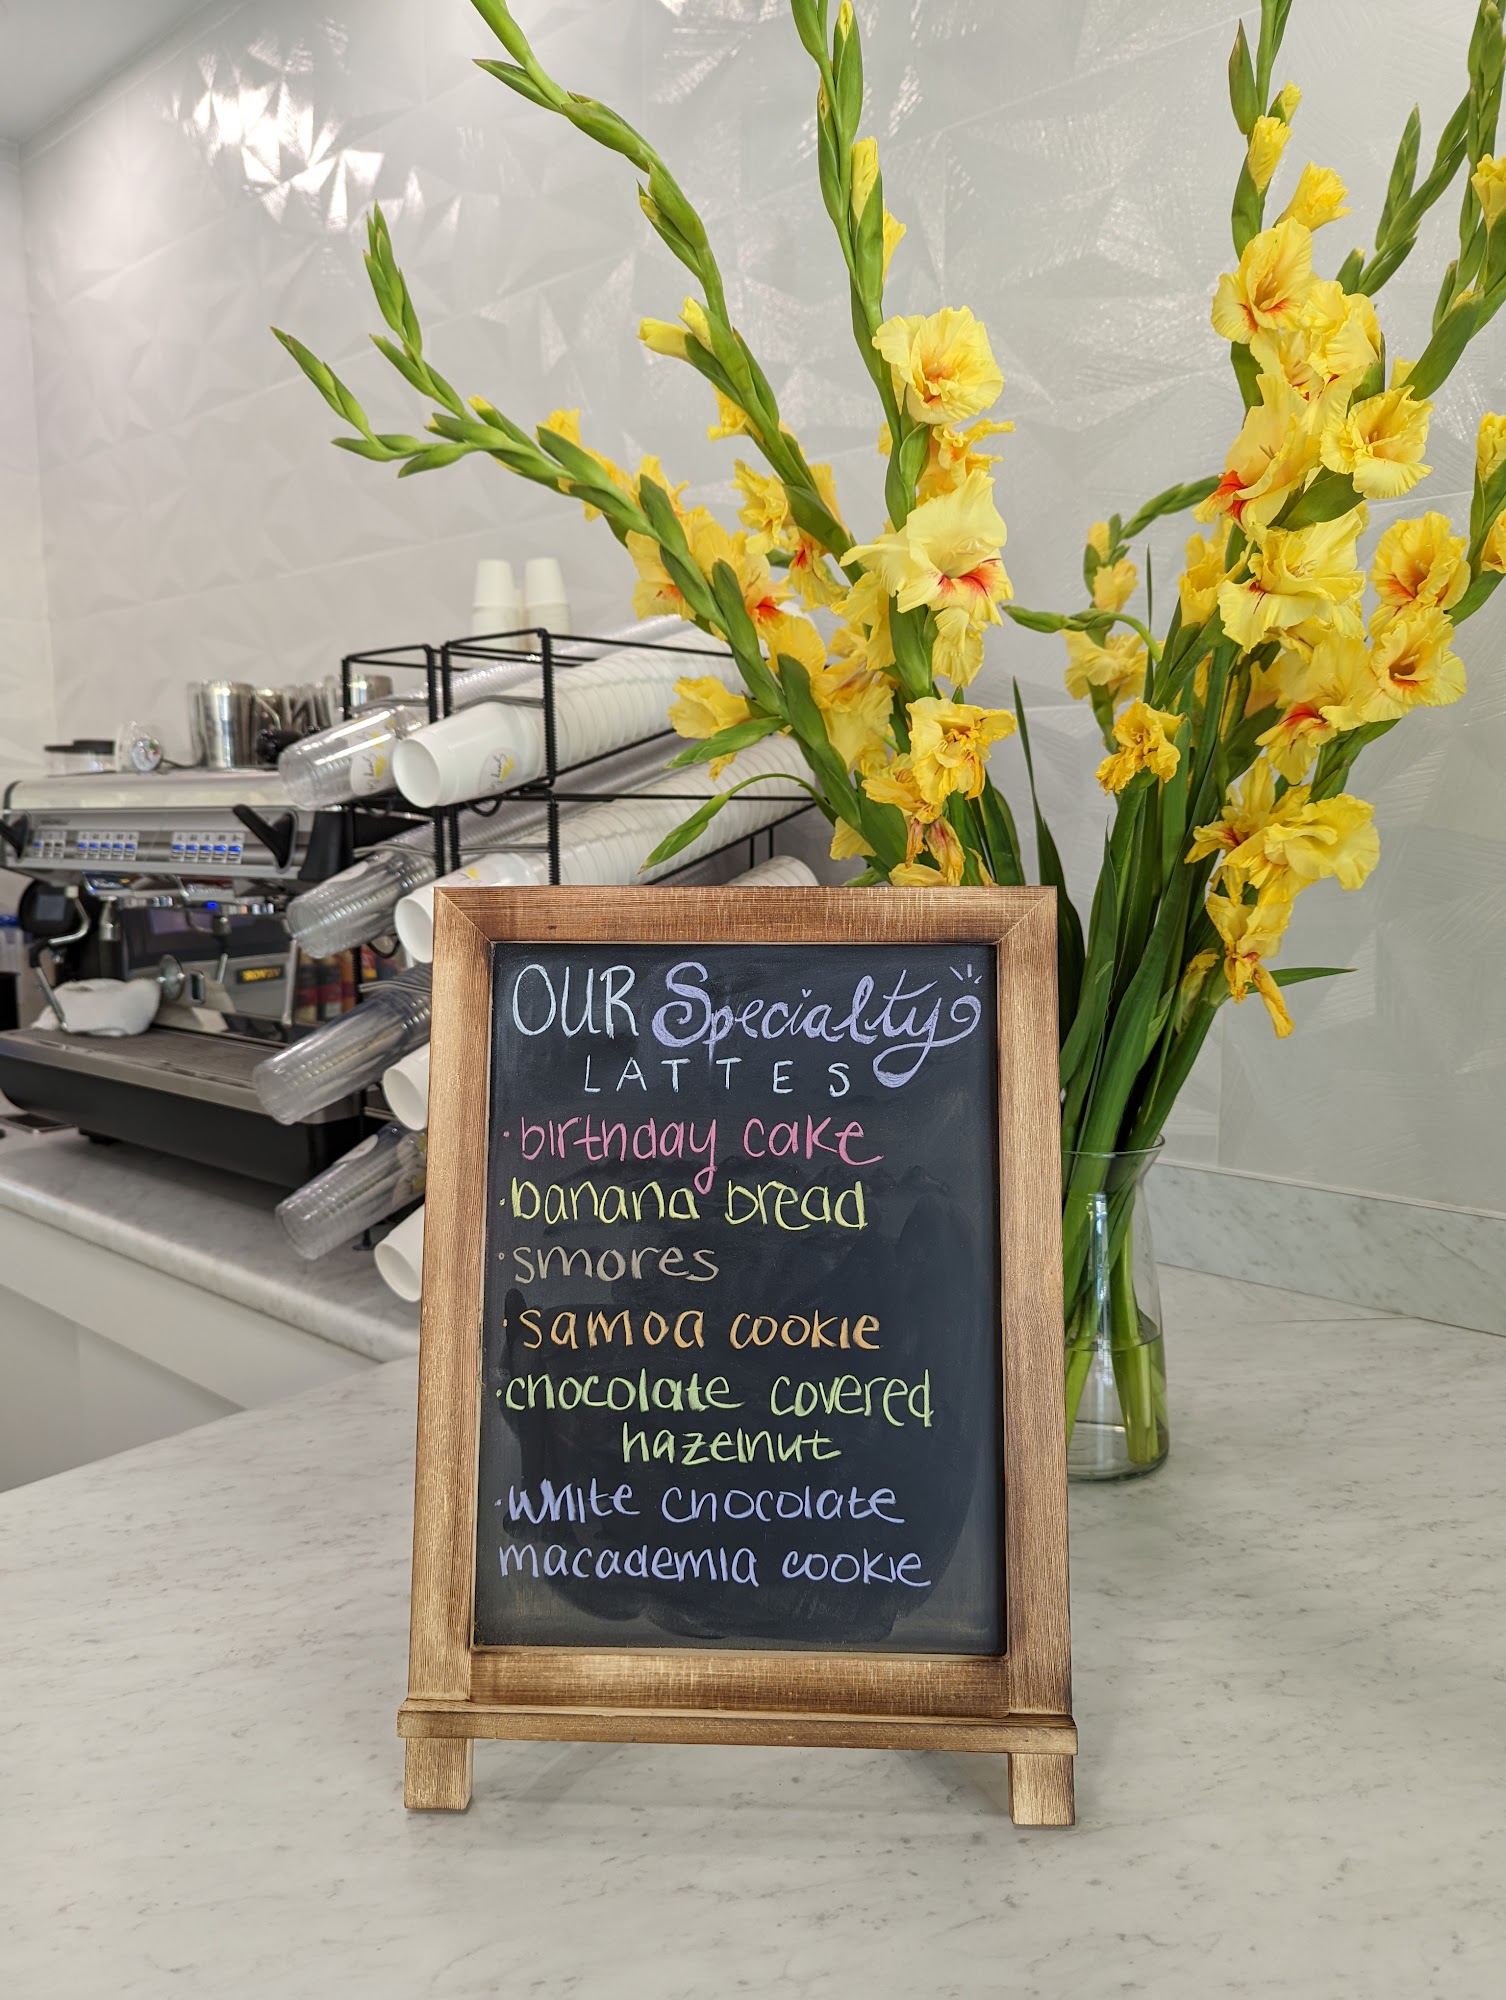 OUR Specialty
LATTES
·birthday cake
·banana bread
·smores
·samoa cookie
·chocolate covered
hazelnut
·white chocolate
macadamia cookie